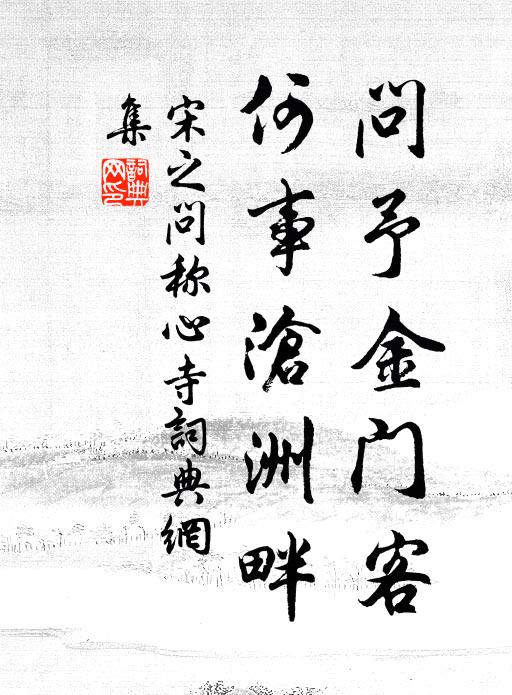 問予金门客
何事滄洲畔
宋之问称心寺詞典網
集
詞典网印